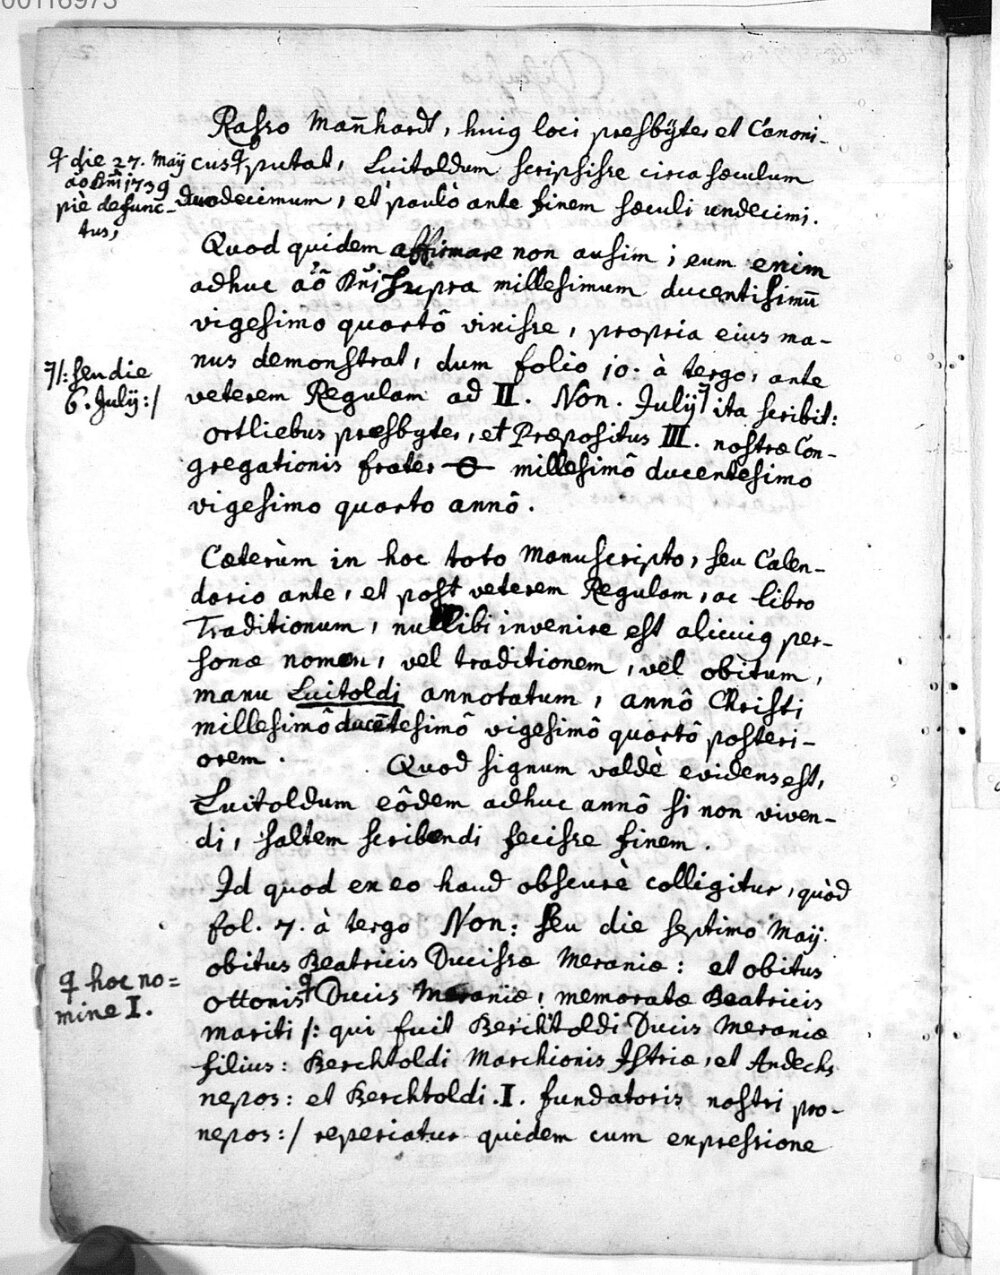 Rasso Man̄hardt, huiꝯ loci presbÿter et Canoni-
cus ꝗ putat, Luitoldum scripsisse circa sæculum
duodecimum, et paulò ante finem sæculi undecimi.
ꝗ die 27. Maÿ
aõ Dn̄i 1739
pie defunc-
tus,
Quod quidem affirmare non ausim; eum enim
adhuc aõ Dn̄i supra millesimum ducentisimū
vigesimo quartô vixisse, propria eius ma-
nus demonstrat, dum folio 10. à tergo, ante
veterem Regulam ad II. Non. Julÿ ꝗ ita scribit:
/: seu die
6. Julÿ :/
ortliebus presbyter, et Præpositus III. nostræ Con-
gregationis frater millesimô ducentesimo
vigesimo quarto annô.
Cæterùm in hoc toto Manuscripto, seu Calen-
dario ante, et post veterem Regulam, ac libro
Traditionum, nullibi invenire est alicuiꝯ per-
sonæ nomen, vel traditionem, vel obitum,
manu Luitoldi annotatum, annô Christi
millesimô ducētesimô vigesimô quartô posteri-
orem. Quod signum valdè evidens est,
Luitoldum eôdem adhuc annô si non viven-
di, saltem scribendi fecisse finem.
Id quod ex eo haud obscurè colligitur, quòd
fol. 7. à tergo Non: seu die septimo Maÿ
obitus Beatricis Ducissæ Meraniæ: et obitus
ottonis ꝗ Ducis Meraniæ, memoratæ Beatricis
ꝗ hoc no=
mine I.
mariti /: qui fuit Berchtoldi Ducis Meraniæ
filius: Berchtoldi Marchionis Istriæ, et Andechs
nepos: et Berchtoldi .I. fundatoris nostri pro-
nepos :/ reperiatur quidem cum expressione